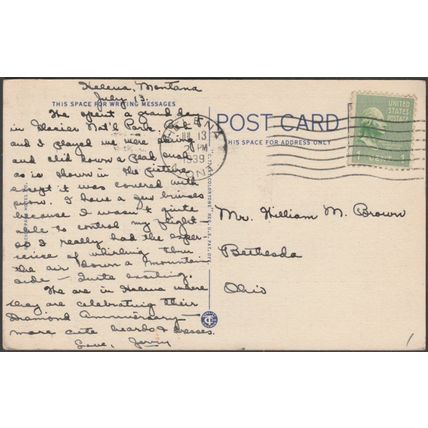 Helena, Montana
July 13.
THIS SPACE FOR WRITING MESSAGES
We spent a grand day
in Glacier Nat'l Park. Bob
and I played we were skiing
and slid down a peak such
as is shown in the picture
except it was covered with
snow. I have a few bruises
because I wasn't quite
able to control my flight
so I really had the exper-
ience of whirling thru
the air down a mountain
side - Quite exciting.
We are in Helena where
they are celebrating their
Diamond Anniversary -
more cute beards & dresses.
Love, Jerry
HELENA
JUL 13
PM
1939
MONT
POST CARD
THIS SPACE FOR ADDRESS ONLY
UNITED
STATES
POSTAGE
1 CENT 1
Mr. William M. Brown
Bethesda
Ohio